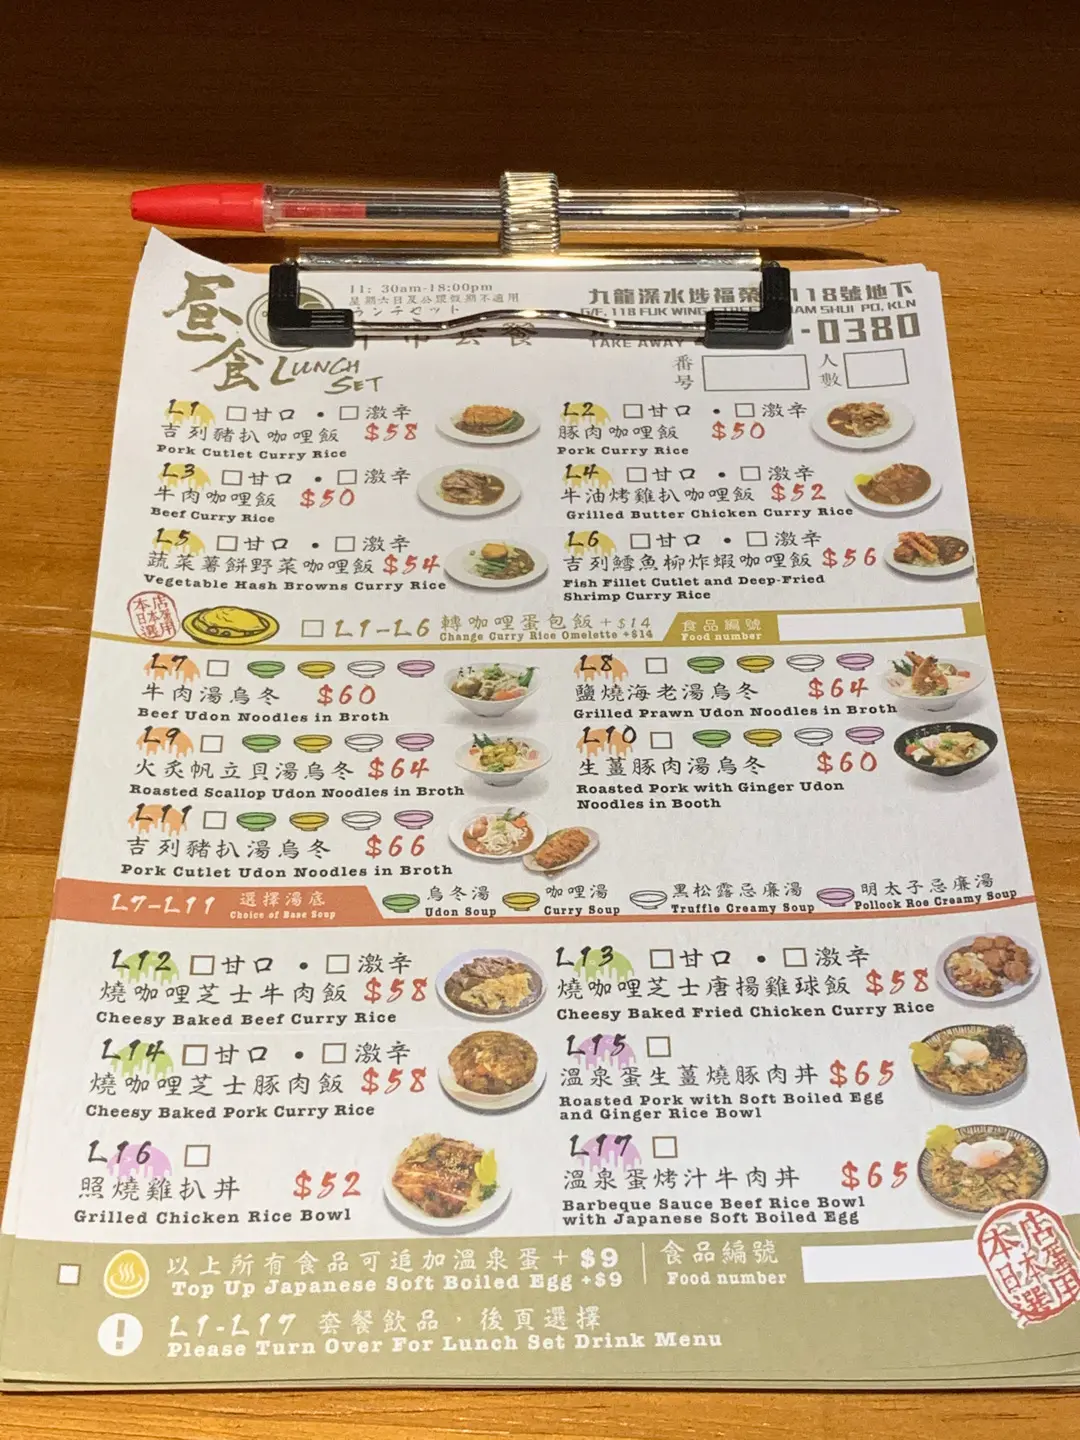 昼食 LUNCH SET
11: 30am-18:00pm
星期六日及公眾假期不適用
ランチセット
九龍深水埗福榮
118號地下
G/F, 118 FUK WING
SHUI PO, KLN
TAKE AWAY
-0380
番号
人數
L1 □甘口 • □激辛
吉列豬扒咖哩飯 $58
Pork Cutlet Curry Rice
L2 □甘口 • □激辛
豚肉咖哩飯 $50
Pork Curry Rice
L3 □甘口 • □激辛
牛肉咖哩飯 $50
Beef Curry Rice
L4 □甘口 • □激辛
牛油烤雞扒咖哩飯 $52
Grilled Butter Chicken Curry Rice
L5 □甘口 • □激辛
蔬菜薯餅野菜咖哩飯 $54
Vegetable Hash Browns Curry Rice
L6 □甘口 • □激辛
吉列鱈魚柳炸蝦咖哩飯 $56
Fish Fillet Cutlet and Deep-Fried
Shrimp Curry Rice
本店日本蛋選用
□ L1-L6 轉咖哩蛋包飯 +$14
Change Curry Rice Omelette +$14
食品編號
Food number
L7 □
牛肉湯烏冬 $60
Beef Udon Noodles in Broth
L8 □
鹽燒海老湯烏冬 $64
Grilled Prawn Udon Noodles in Broth
L9 □
火炙帆立貝湯烏冬 $64
Roasted Scallop Udon Noodles in Broth
L10 □
生薑豚肉湯烏冬 $60
Roasted Pork with Ginger Udon
Noodles in Booth
L11 □
吉列豬扒湯烏冬 $66
Pork Cutlet Udon Noodles in Broth
L7-L11 選擇湯底
Choice of Base Soup
烏冬湯
Udon Soup
咖哩湯
Curry Soup
黑松露忌廉湯
Truffle Creamy Soup
明太子忌廉湯
Pollock Roe Creamy Soup
L12 □甘口 • □激辛
燒咖哩芝士牛肉飯 $58
Cheesy Baked Beef Curry Rice
L13 □甘口 • □激辛
燒咖哩芝士唐揚雞球飯 $58
Cheesy Baked Fried Chicken Curry Rice
L14 □甘口 • □激辛
燒咖哩芝士豚肉飯 $58
Cheesy Baked Pork Curry Rice
L15 □
溫泉蛋生薑燒豚肉丼 $65
Roasted Pork with Soft Boiled Egg
and Ginger Rice Bowl
L16 □
照燒雞扒丼 $52
Grilled Chicken Rice Bowl
L17 □
溫泉蛋烤汁牛肉丼 $65
Barbeque Sauce Beef Rice Bowl
with Japanese Soft Boiled Egg
以上所有食品可追加溫泉蛋 + $9
Top Up Japanese Soft Boiled Egg +$9
食品編號
Food number
本店日本蛋選用
L1-L17 套餐飲品，後頁選擇
Please Turn Over For Lunch Set Drink Menu